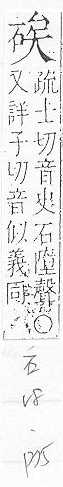 疏士切音史石墮聲〇
又詳子切音似義同
石